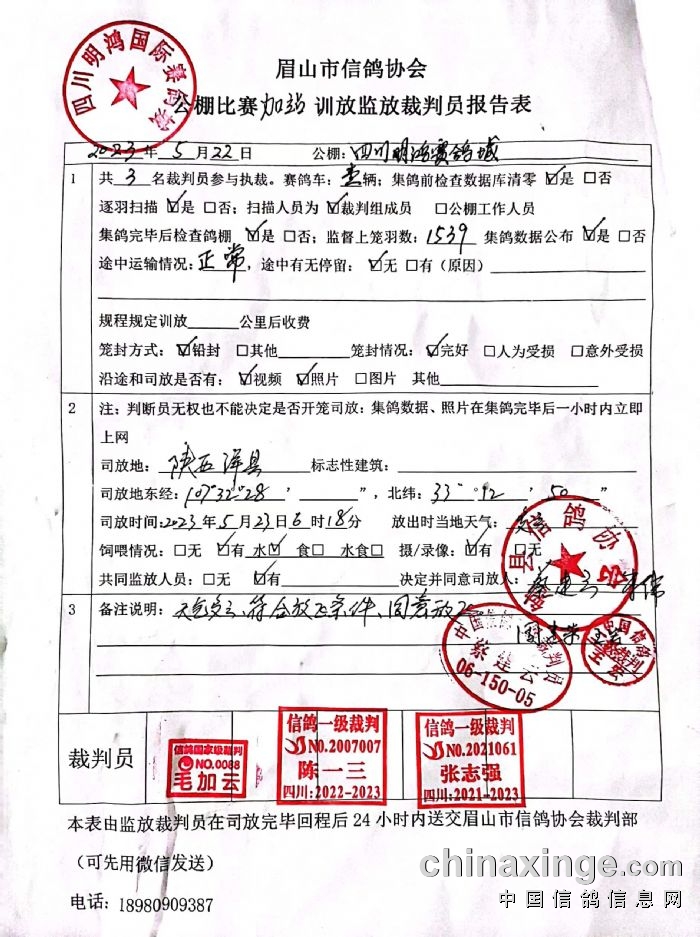 四川明鸿国际赛鸽城
眉山市信鸽协会
公棚比赛加站训放监放裁判员报告表
2023年5月22日 公棚：四川明鸿赛鸽城
1 共3名裁判员参与执裁。赛鸽车：壹辆；集鸽前检查数据库清零 ☑是 □否
逐羽扫描 ☑是 □否；扫描人员为 ☑裁判组成员 □公棚工作人员
集鸽完毕后检查鸽棚 ☑是 □否；监督上笼羽数：1539 集鸽数据公布 ☑是 □否
途中运输情况：正常，途中有无停留：☑无 □有（原因）
规程规定训放______公里后收费
笼封方式：☑铅封 □其他______ 笼封情况：☑完好 □人为受损 □意外受损
沿途和司放是否有：☑视频 ☑照片 □图片 其他______
2 注：判断员无权也不能决定是否开笼司放：集鸽数据、照片在集鸽完毕后一小时内立即
上网
司放地：陕西洋县 标志性建筑：
司放地东经：107°32°28′ ______”，北纬：33°12′50”
司放时间：2023年5月23日6时18分 放出时当地天气：
饲喂情况：□无 ☑有 水☑ 食□ 水食□ 摄/录像：☑有 □无
共同监放人员：□无 ☑有 决定并同意司放人：蔡建云
3 备注说明：天气多云、符合放飞条件、同意放飞
县信鸽协会
中国信鸽 裁判员
蔡建云
06-150-05
中国信鸽
裁判员
裁判员
信鸽国家级裁判
NO.0088
毛加云
信鸽一级裁判
NO.2007007
陈一三
四川：2022-2023
信鸽一级裁判
NO.2021061
张志强
四川：2021-2023
本表由监放裁判员在司放完毕回程后24小时内送交眉山市信鸽协会裁判部
（可先用微信发送）
电话：18980909387
chinaxinge.com
中国信鸽信息网